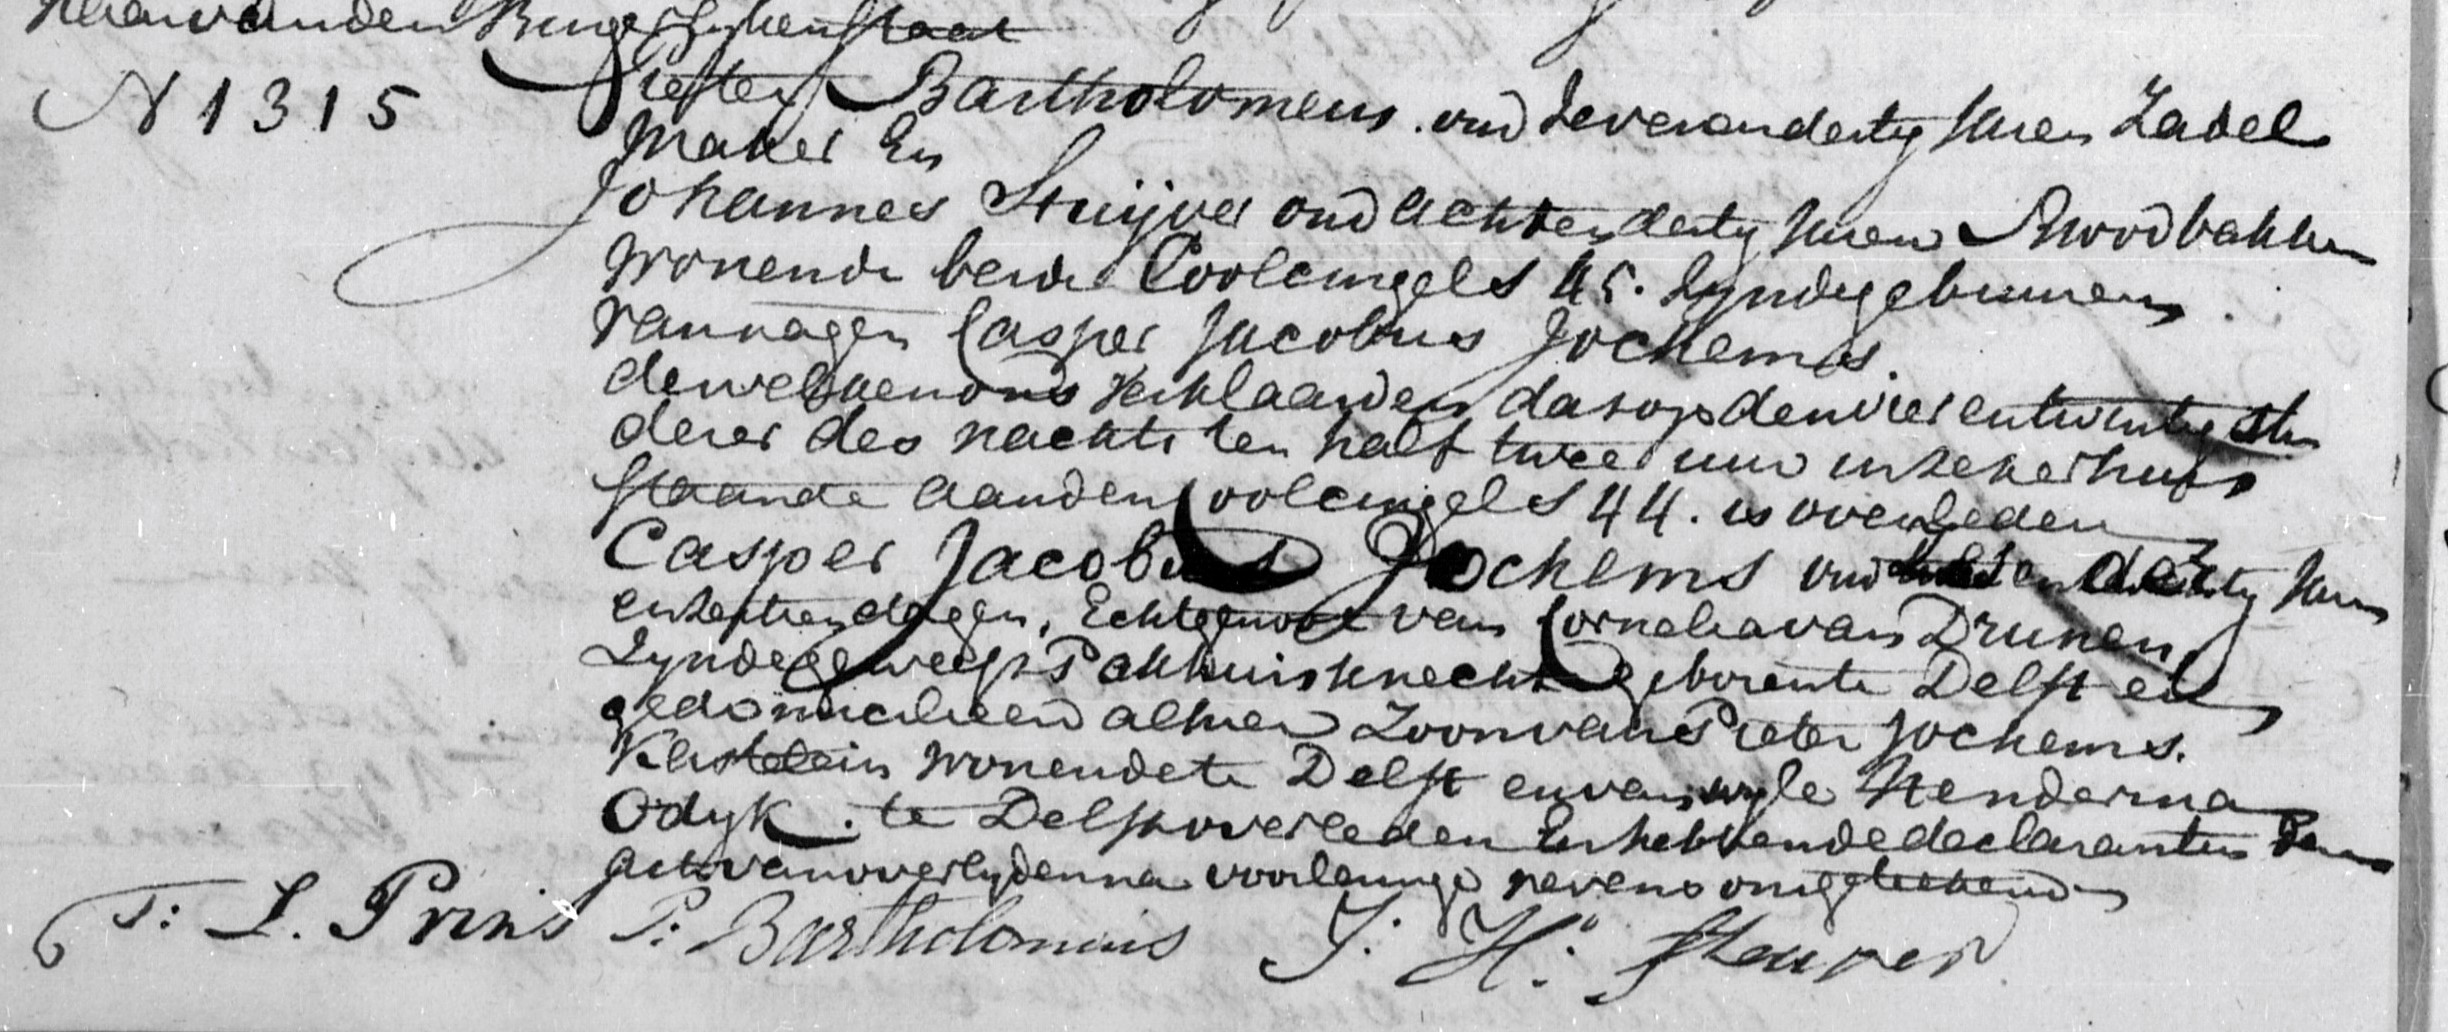 van den Burgerlyken staat
N 1315
Pieter Bartholomeus oud Zevenendertig Jaren Zadel
Maker En
Johannes Stuijver oud achtendertig Jaren Broodbakker
Wonende beide Coolcingel S 45. Zynde gebuuren
van nagen Casper Jacobus Jochems.
dewelke ons verklaarden dat op den vier entwintigsten
dezer des nachts ten half twee uuren in zeker huis
staande aan den Coolcingel S 44. is overleden
Casper Jacobus Jochems oud dertig Jaren
en zestien dagen, Echtgenoot van Cornelia van Drunen
Zynde geweest Pakhuisknecht geboren te Delft en
gedomicilieerd alhier Zoon van Pieter Jochems.
Kastelein wonende te Delft en van wyle Henderina
Odyk. te Delft overleden En hebbende declaranten deze
acte van overlyden na voorlezinge nevens ons geteekend
T: L. Prins P: Bartholomeus J: H: Steuver